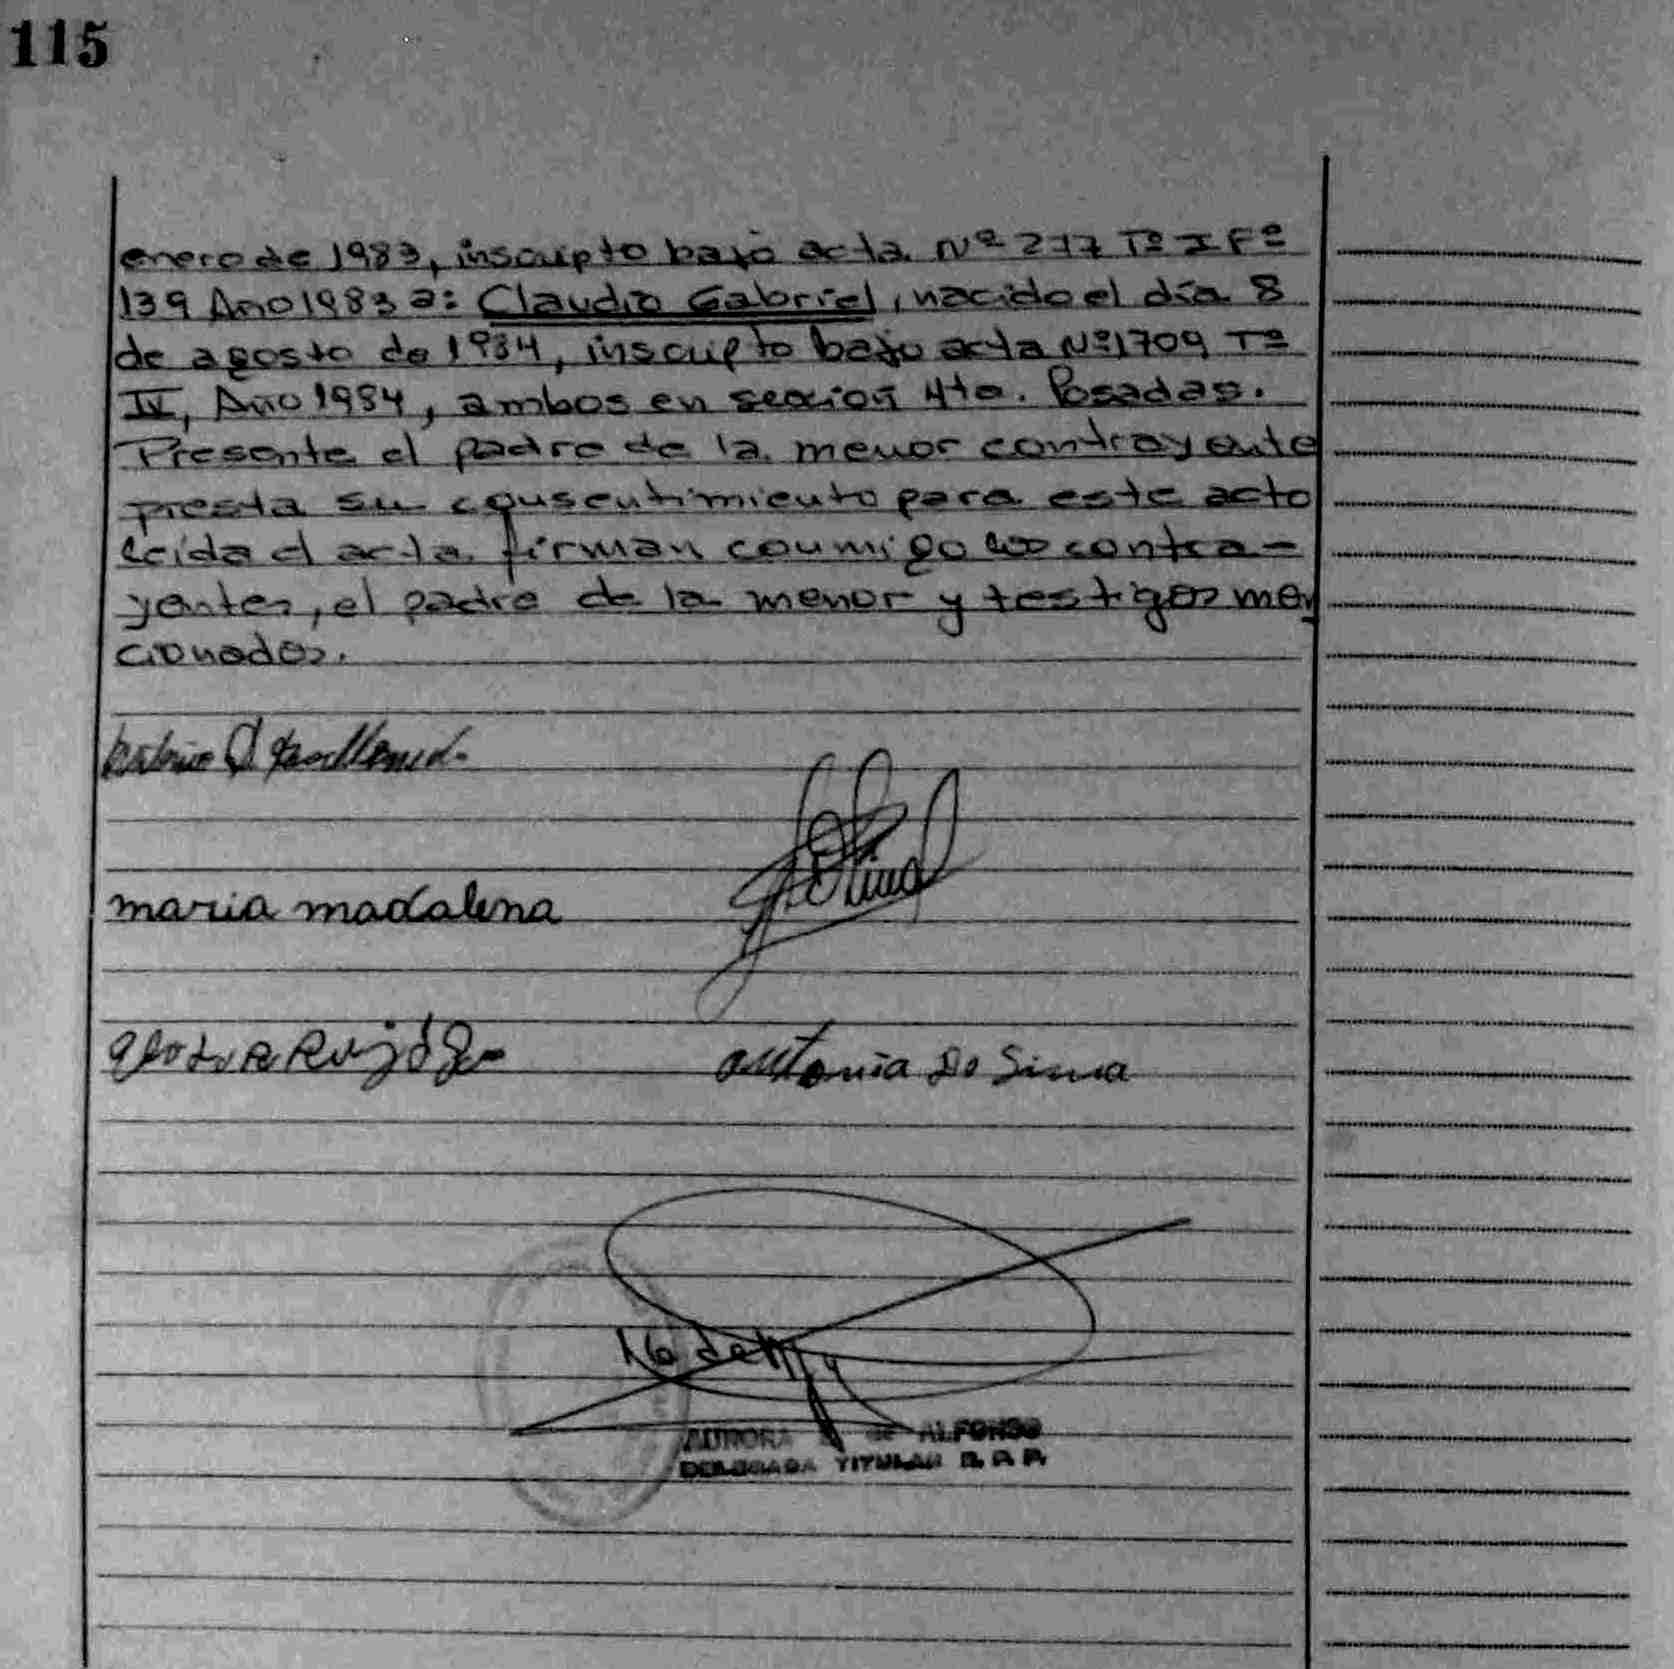 115
enero de 1983, inscripto bajo acta Nº 277 Tº I Fº
139 Año 1983 a: Claudio Gabriel, nacido el día 8
de agosto de 1984, inscripto bajo acta Nº1709 Tº
IV, Año 1984, ambos en sección 4ta. Posadas.
Presente el padre de la menor contrayente
presta su consentimiento para este acto
leida el acta firman conmigo los contra-
yentes, el padre de la menor y testigos men
cionados.
maria madalena
antonia Do Sima
AURORA de ALFONSO
DELEGADA TITULAR R. P. P.